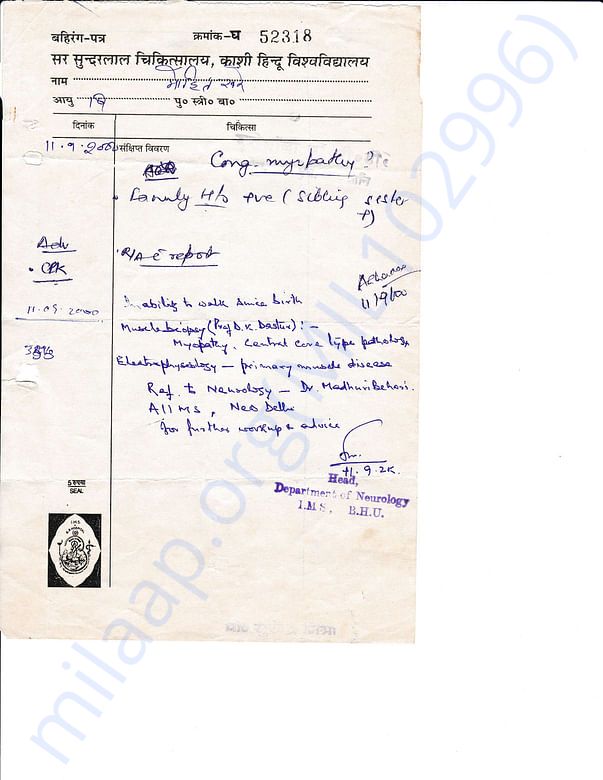 बहिरंग-पत्र क्रमांक-घ 52318
सर सुन्दरलाल चिकित्सालय, काशी हिन्दू विश्वविद्यालय
नाम मोहित
आयु पु० स्त्री० बा०
दिनांक चिकित्सा
11.9.2000 संक्षिप्त विवरण
Cong. myopathy ?
Family H/o +ve (Sibling sister
Adv
R/A c report
CPK
11/9/00
11.09.2000 Inability to walk since birth
Muscle biopsy (Prof D.K. Dastur) :-
Myopathy. Central core type pathology
Electrophysiology — primary muscle disease
Ref. to Neurology — Dr. Madhuri Behari.
AIIMS, New Delhi
for further workup & advice
11.9.2K.
Head,
Department of Neurology
I.M.S, B.H.U.
5 रुपया
SEAL
milaap.org(will102996)